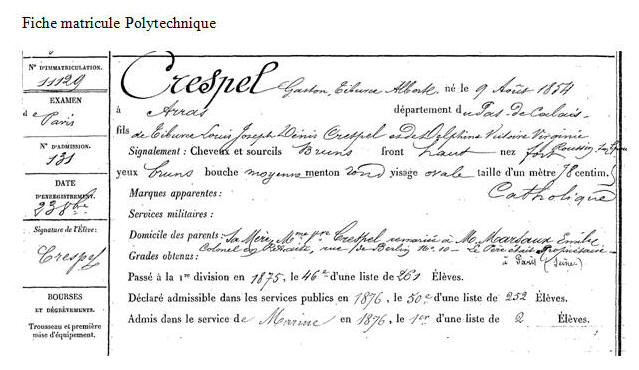 Fiche matricule Polytechnique
N° D'IMMATRICULATION.
11129
EXAMEN
de Paris
N° D'ADMISSION.
131
DATE
D'ENREGISTREMENT.
Signature de l'Élève:
Crespel
BOURSES
ET DÉGRÈVEMENTS.
Trousseau et première
mise d'équipement.
Crespel Gaston, Tiburce Albert, né le 9 Août 1854
à Arras département du Pas-de-Calais
fils de Tiburce Louis Joseph Denis Crespel et de Delphine Victoire Virginie
Signalement: Cheveux et sourcils Bruns front haut nez fort
yeux bruns bouche moyenne menton rond visage ovale taille d'un mètre 78 centim.
Marques apparentes: Catholique
Services militaires:
Domicile des parents: Sa Mère, Mme Crespel remariée à M. Marsaux Emile
Colonel en Retraite, rue de Berlin No 10 - Le Père était Propriétaire
Grades obtenus: à Paris (Seine)
Passé à la 1re division en 1875, le 46e d'une liste de 261 Élèves.
Déclaré admissible dans les services publics en 1876, le 50e d'une liste de 252 Élèves.
Admis dans le service de Marine en 1876, le 1er d'une liste de 2 Élèves.